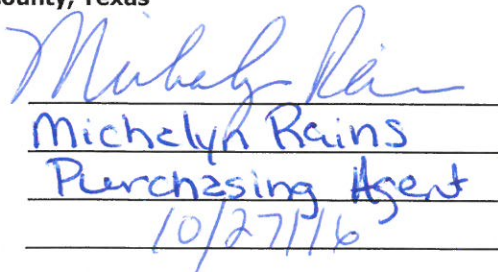 County, Texas
Michalyn Rains
Michalyn Rains
Purchasing Agent
10/27/16